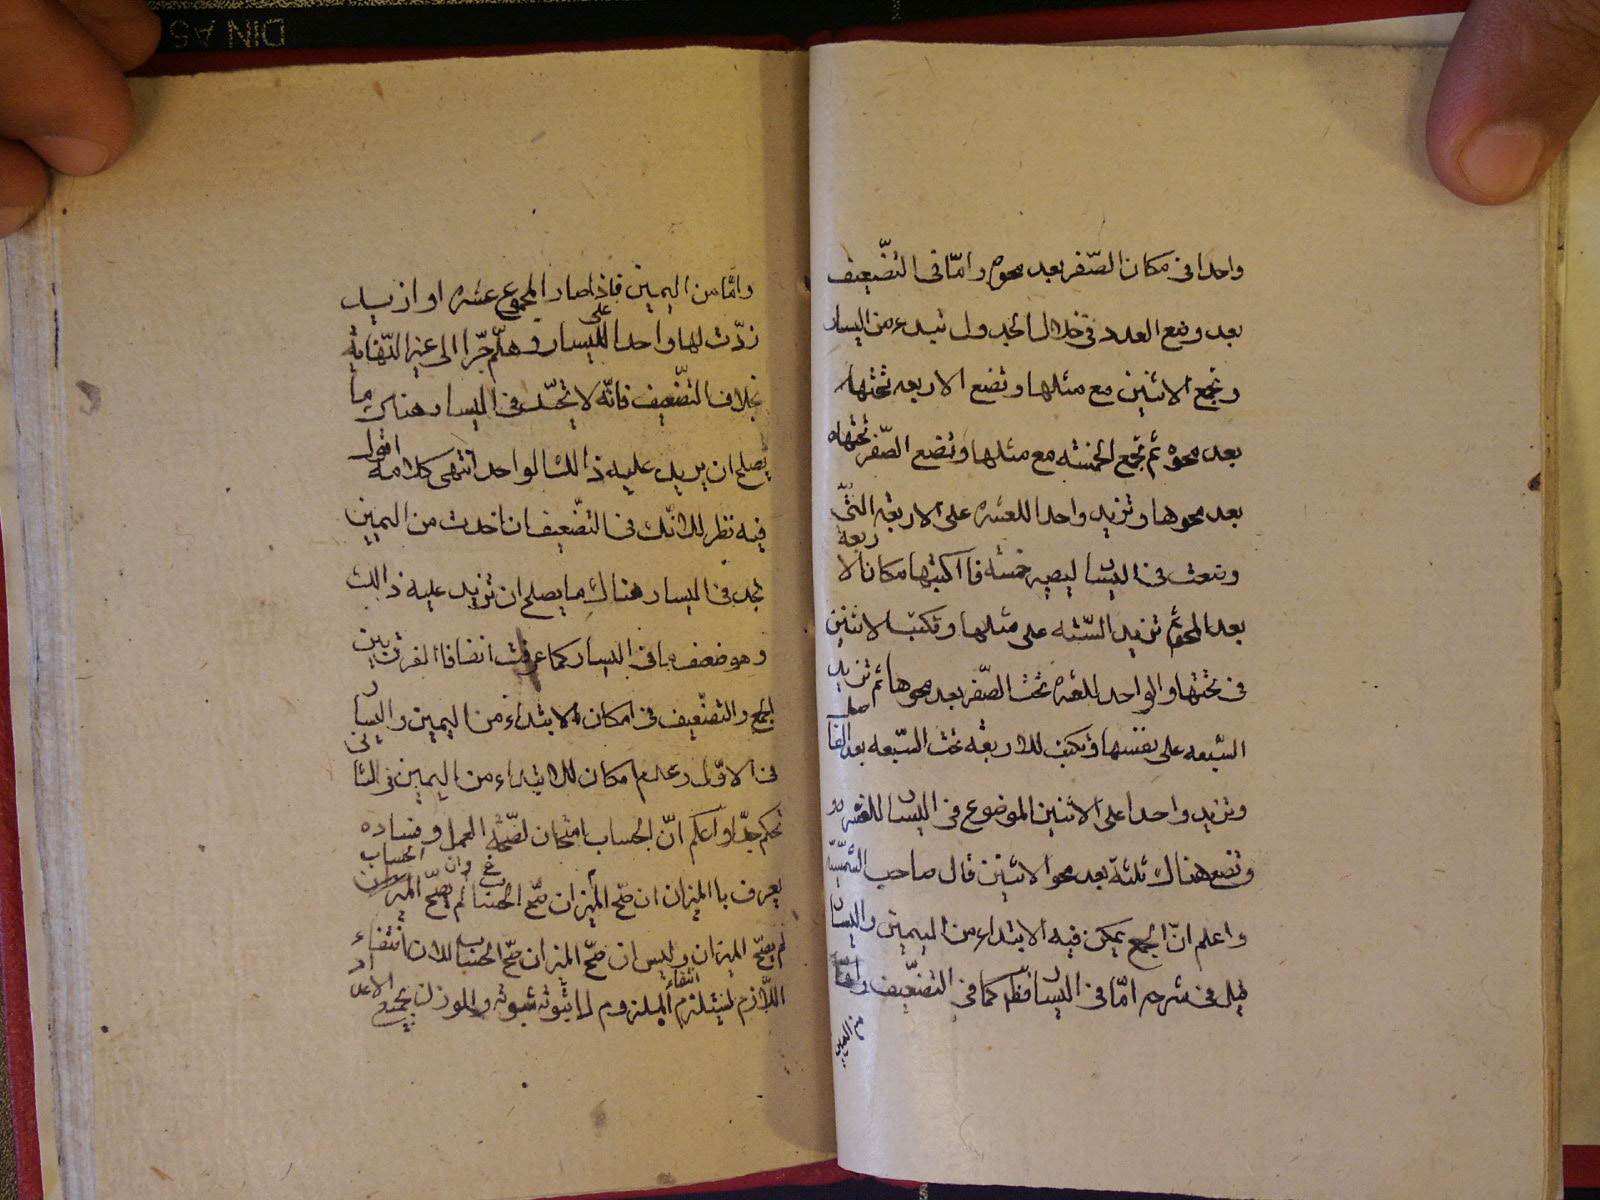 واحدا فى مكان الصّفر بعد محوه وامّا فى التضّعيف
بعد وضع العدد فى خلال الجدول تبدء من اليسار
وتجمع الاثنين مع مثلها وتضع الاربعه تحتها
بعد محوه ثم تجمع الخمسة مع مثلها وتضع الصّفر تحتها
بعد محوها وتزيد واحدا للعشره على الاربعة التى
وقعت فى اليسار ليصير خمسة فاكتبها مكان الاربعة
بعد المحو ثم تزيد السّتة على مثلها وتكتب الاثنين
فى تحتها والواحد للعشره تحت الصّفر بعد محوها ثم تزيد
السّبعه على نفسها وتكتب الاربعة تحت السّبعه بعد
وتزيد واحدا على الاثنين الموضوع فى اليسار للعشره
وتضع هناك ثلثة بعد محو الاثنين قال صاحب الشمسيّة
واعلم انّ الجمع يمكن فيه الابتداء من اليمين واليسار
قيل فى شرحه امّا فى اليسار فظ كما فى التضّعيف وامّا
من اليمين
وامّا من اليمين فاذا صار المجموع عشره او ازيد
زدّت لها واحدا على اليسار وهلّم جرّا الى غير النّهاية
بخلاف التضّعيف فانّه لا تجد فى اليسار هناك ما
يصلح ان يزيد عليه ذالك الواحد انتهى كلامه اقول
فيه نظر لانّك فى التضّعيف ان اخذت من اليمين
تجد فى اليسار هناك ما يصلح ان تزيد عليه ذالك
وهو ضعف ما فى اليسار كما عرفت انفا فالفرق بين
الجمع والتضّعيف فى امكان الابتداء من اليمين واليسار
فى الاوّل وعدم امكان الابتداء من اليمين فى الثانى
تحكم جدّا واعلم انّ الحساب امتحان لصّحة العمل وفساده
يعرف باالميزان ان صّح الميزان صّح الحساب وان لم يصّح الحساب
لم يصّح الميزان وليس ان صّح الميزان صّح الحساب لان انتفاء
اللّازم يستلزم انتفاء الملزوم لا ثبوته ثبوته والموزن يجمع الاعداد